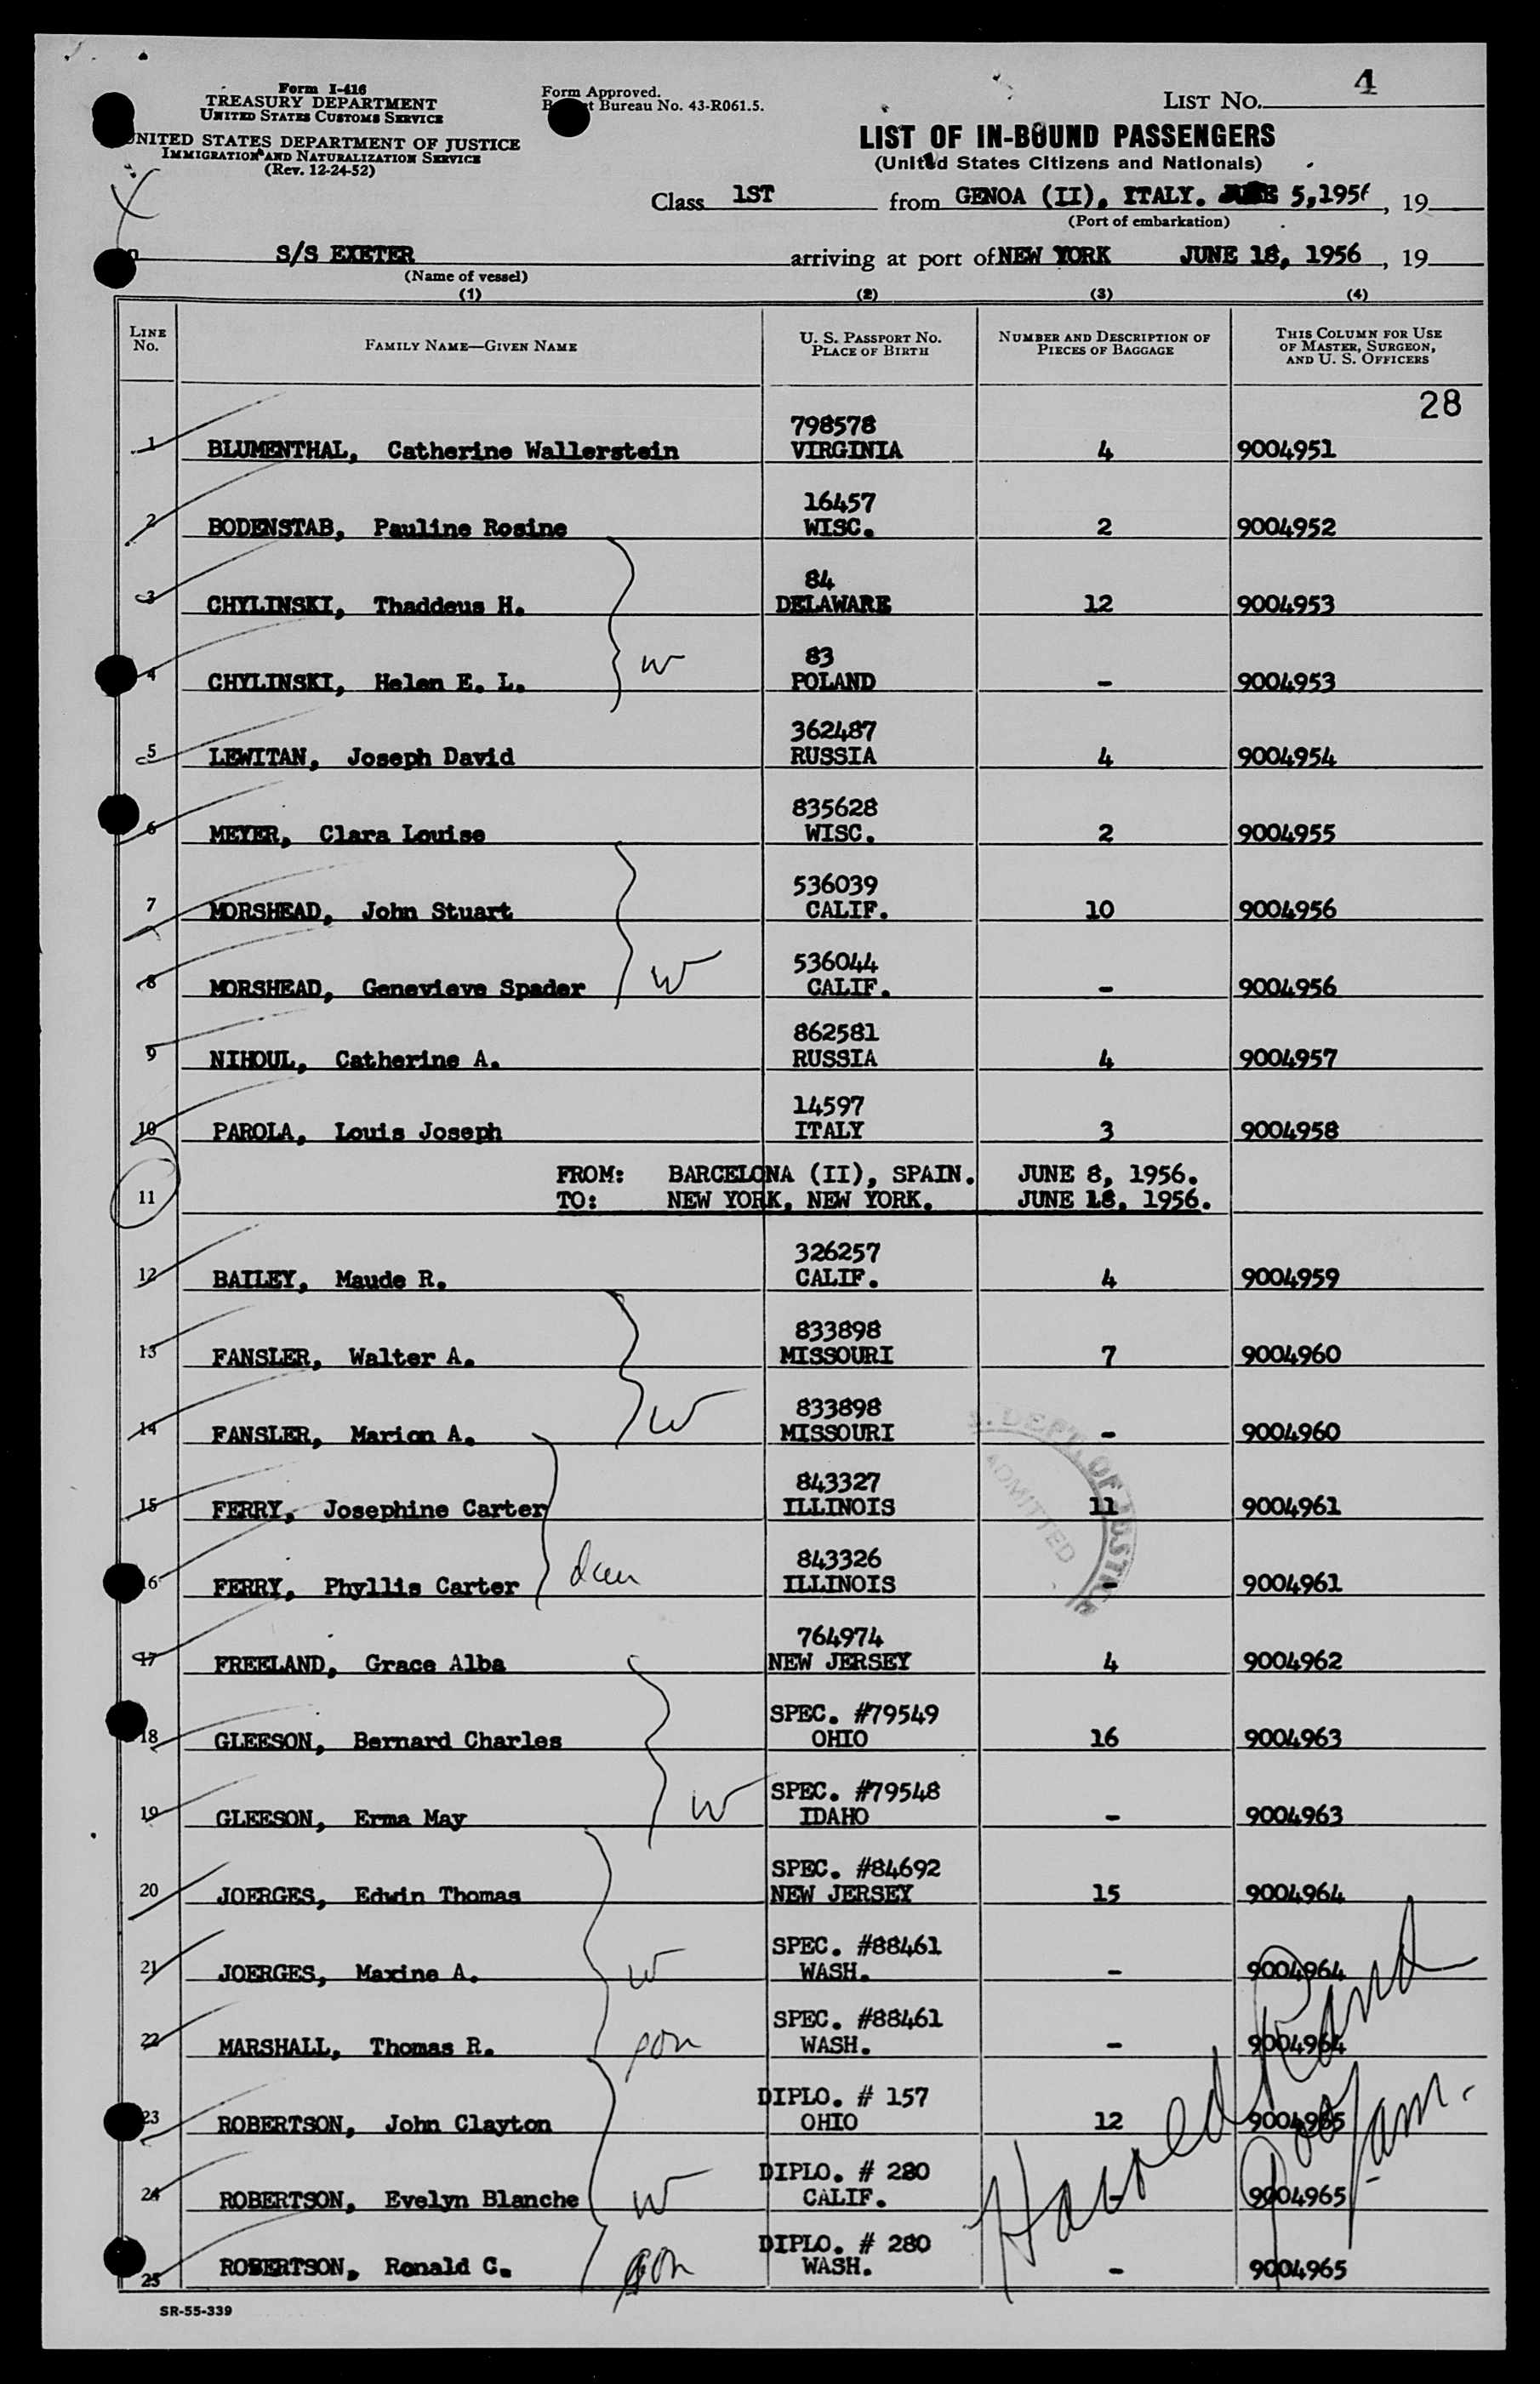 Form I-416
TREASURY DEPARTMENT
UNITED STATES CUSTOMS SERVICE
UNITED STATES DEPARTMENT OF JUSTICE
IMMIGRATION AND NATURALIZATION SERVICE
(Rev. 12-24-52)
Form Approved.
Bureau No. 43-R061.5.
LIST NO. 4
LIST OF IN-BOUND PASSENGERS
(United States Citizens and Nationals)
Class 1ST from GENOA (II), ITALY. 5,1956, 19
(Port of embarkation)
S/S EXETER arriving at port of NEW YORK JUNE 18, 1956, 19
(Name of vessel)
(1) (2) (3) (4)
LINE No. FAMILY NAME—GIVEN NAME U. S. PASSPORT NO. PLACE OF BIRTH NUMBER AND DESCRIPTION OF PIECES OF BAGGAGE THIS COLUMN FOR USE OF MASTER, SURGEON, AND U. S. OFFICERS
28
798578
1 BLUMENTHAL, Catherine Wallerstein VIRGINIA 4 9004951
16457
2 BODENSTAB, Pauline Rosine WISC. 2 9004952
84
3 CHYLINSKI, Thaddeus H. DELAWARE 12 9004953
83
4 CHYLINSKI, Helen E. L. W POLAND - 9004953
362487
5 LEWITAN, Joseph David RUSSIA 4 9004954
835628
6 MEYER, Clara Louise WISC. 2 9004955
536039
7 MORSHEAD, John Stuart CALIF. 10 9004956
536044
8 MORSHEAD, Genevieve Spader W CALIF. - 9004956
862581
9 NIHOUL, Catherine A. RUSSIA 4 9004957
14597
10 PAROLA, Louis Joseph ITALY 3 9004958
FROM: BARCELONA (II), SPAIN. JUNE 8, 1956.
11 TO: NEW YORK, NEW YORK. JUNE 18, 1956.
326257
12 BAILEY, Maude R. CALIF. 4 9004959
833898
13 FANSLER, Walter A. MISSOURI 7 9004960
833898
14 FANSLER, Marion A. W MISSOURI - 9004960
843327
15 FERRY, Josephine Carter ILLINOIS 11 9004961
843326
16 FERRY, Phyllis Carter dau ILLINOIS - 9004961
ADMITTED
764974
17 FREELAND, Grace Alba NEW JERSEY 4 9004962
SPEC. #79549
18 GLEESON, Bernard Charles OHIO 16 9004963
SPEC. #79548
19 GLEESON, Erma May W IDAHO - 9004963
SPEC. #84692
20 JOERGES, Edwin Thomas NEW JERSEY 15 9004964
SPEC. #88461
21 JOERGES, Maxine A. W WASH. - 9004964
SPEC. #88461
22 MARSHALL, Thomas R. son WASH. - 9004964
DIPLO. # 157
23 ROBERTSON, John Clayton OHIO 12 9004965
DIPLO. # 280
24 ROBERTSON, Evelyn Blanche W CALIF. - 9004965
DIPLO. # 280
25 ROBERTSON, Ronald C. son WASH. - 9004965
SR-55-339